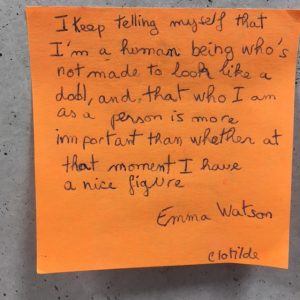 I keep telling myself that
I'm a human being who's
not made to look like a
doll, and, that who I am
as a person is more
important than whether at
that moment I have
a nice figure
Emma Watson
Clotilde